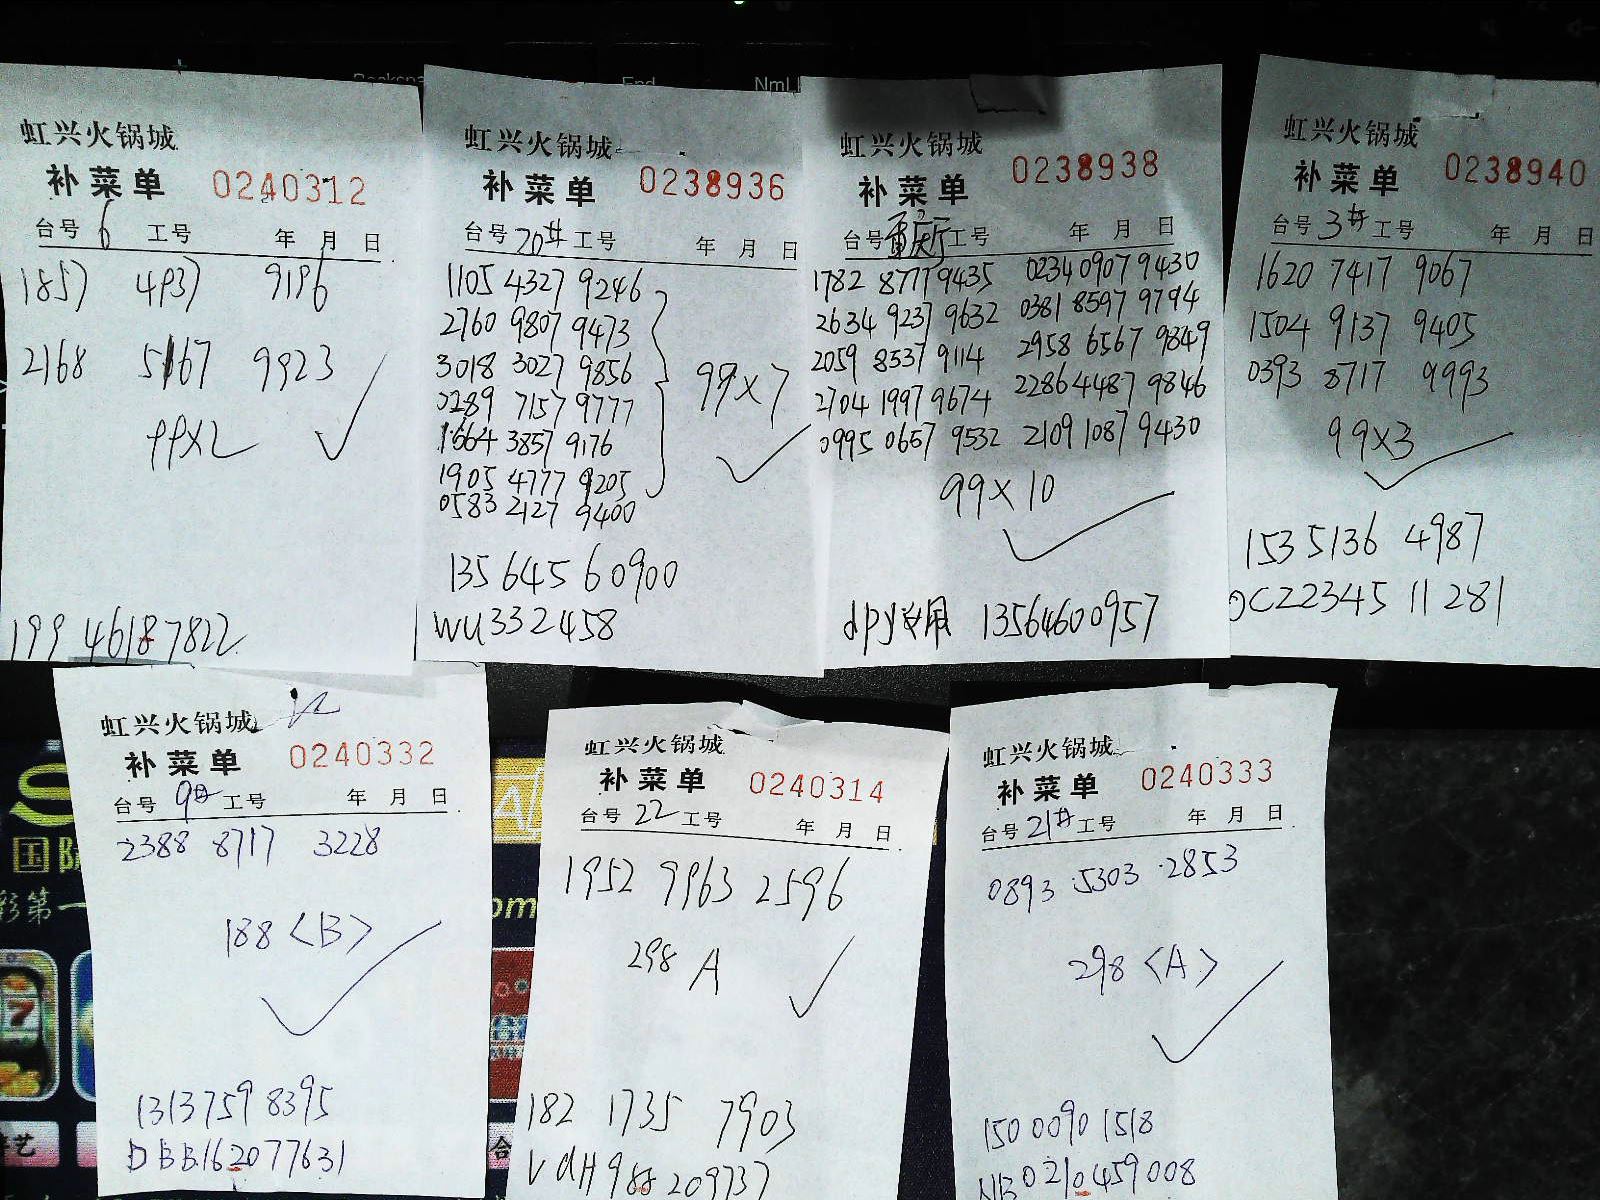 End
虹兴火锅城
补菜单 0240312
台号 6 工号 年 月 日
1857 4937 9196
2168 5167 9923
99X2
199 46187822
虹兴火锅城
补菜单 0238936
台号 20# 工号 年 月 日
1105 4327 9246
2760 9807 9473
3018 3027 9856
0289 7157 9777
1664 3857 9176
1905 4777 9205
0583 2127 9400
99X7
135 645 60900
WU332458
虹兴火锅城
补菜单 0238938
台号 重庆厅 工号 年 月 日
1782 8777 9435 0234 0907 9430
2634 9237 9632 0381 8597 9794
2059 8537 9114 2958 6567 9849
2704 1997 9674 2286 4487 9846
0995 0667 9532 2109 1087 9430
99X10
dpy专用 13564600957
虹兴火锅城
补菜单 0238940
台号 3# 工号 年 月 日
1620 7417 9067
1504 9137 9405
0393 8717 9993
99X3
153 5136 4987
OCZ2345 11 281
虹兴火锅城
补菜单 0240332
台号 9# 工号 年 月 日
2388 8717 3228
188 <B>
1313759 8395
DBB162077631
虹兴火锅城
补菜单 0240314
台号 22 工号 年 月 日
1952 9963 2596
298 A
182 1735 7903
VdH988209737
虹兴火锅城
补菜单 0240333
台号 21# 工号 年 月 日
0893 5303 2853
298 <A>
150 0090 1518
0210459008